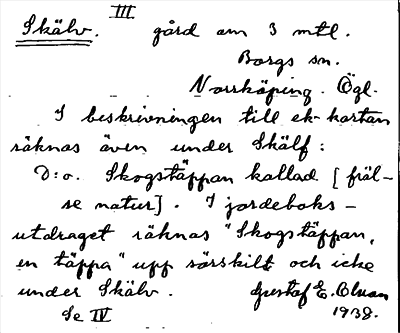 III
Skälv. gård om 3 mtl.
Borgs sn.
Norrköping. Ögl.
I beskrivningen till ek-kartan
räknas även under Skälf:
D:o. Skogstäppan kallad [fräl-
se natur]. I jordeboks-
utdraget räknas "Skogstäppan,
en täppa" upp särskilt och icke
under Skälv. Gustaf E. Olsson
Se IV 1938.